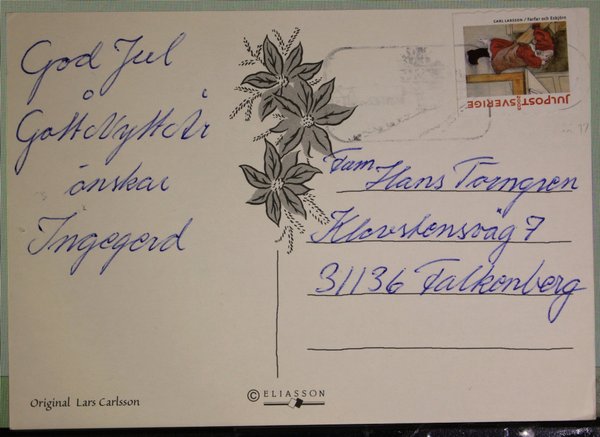 God Jul
&
Gott Nytt År
önskar
Ingegerd
CARL LARSSON / Farfar och Esbjörn
JULPOST SVERIGE
Fam
Hans Torngren
Klovstensväg 7
31136 Falkenberg
Original Lars Carlsson
© ELIASSON